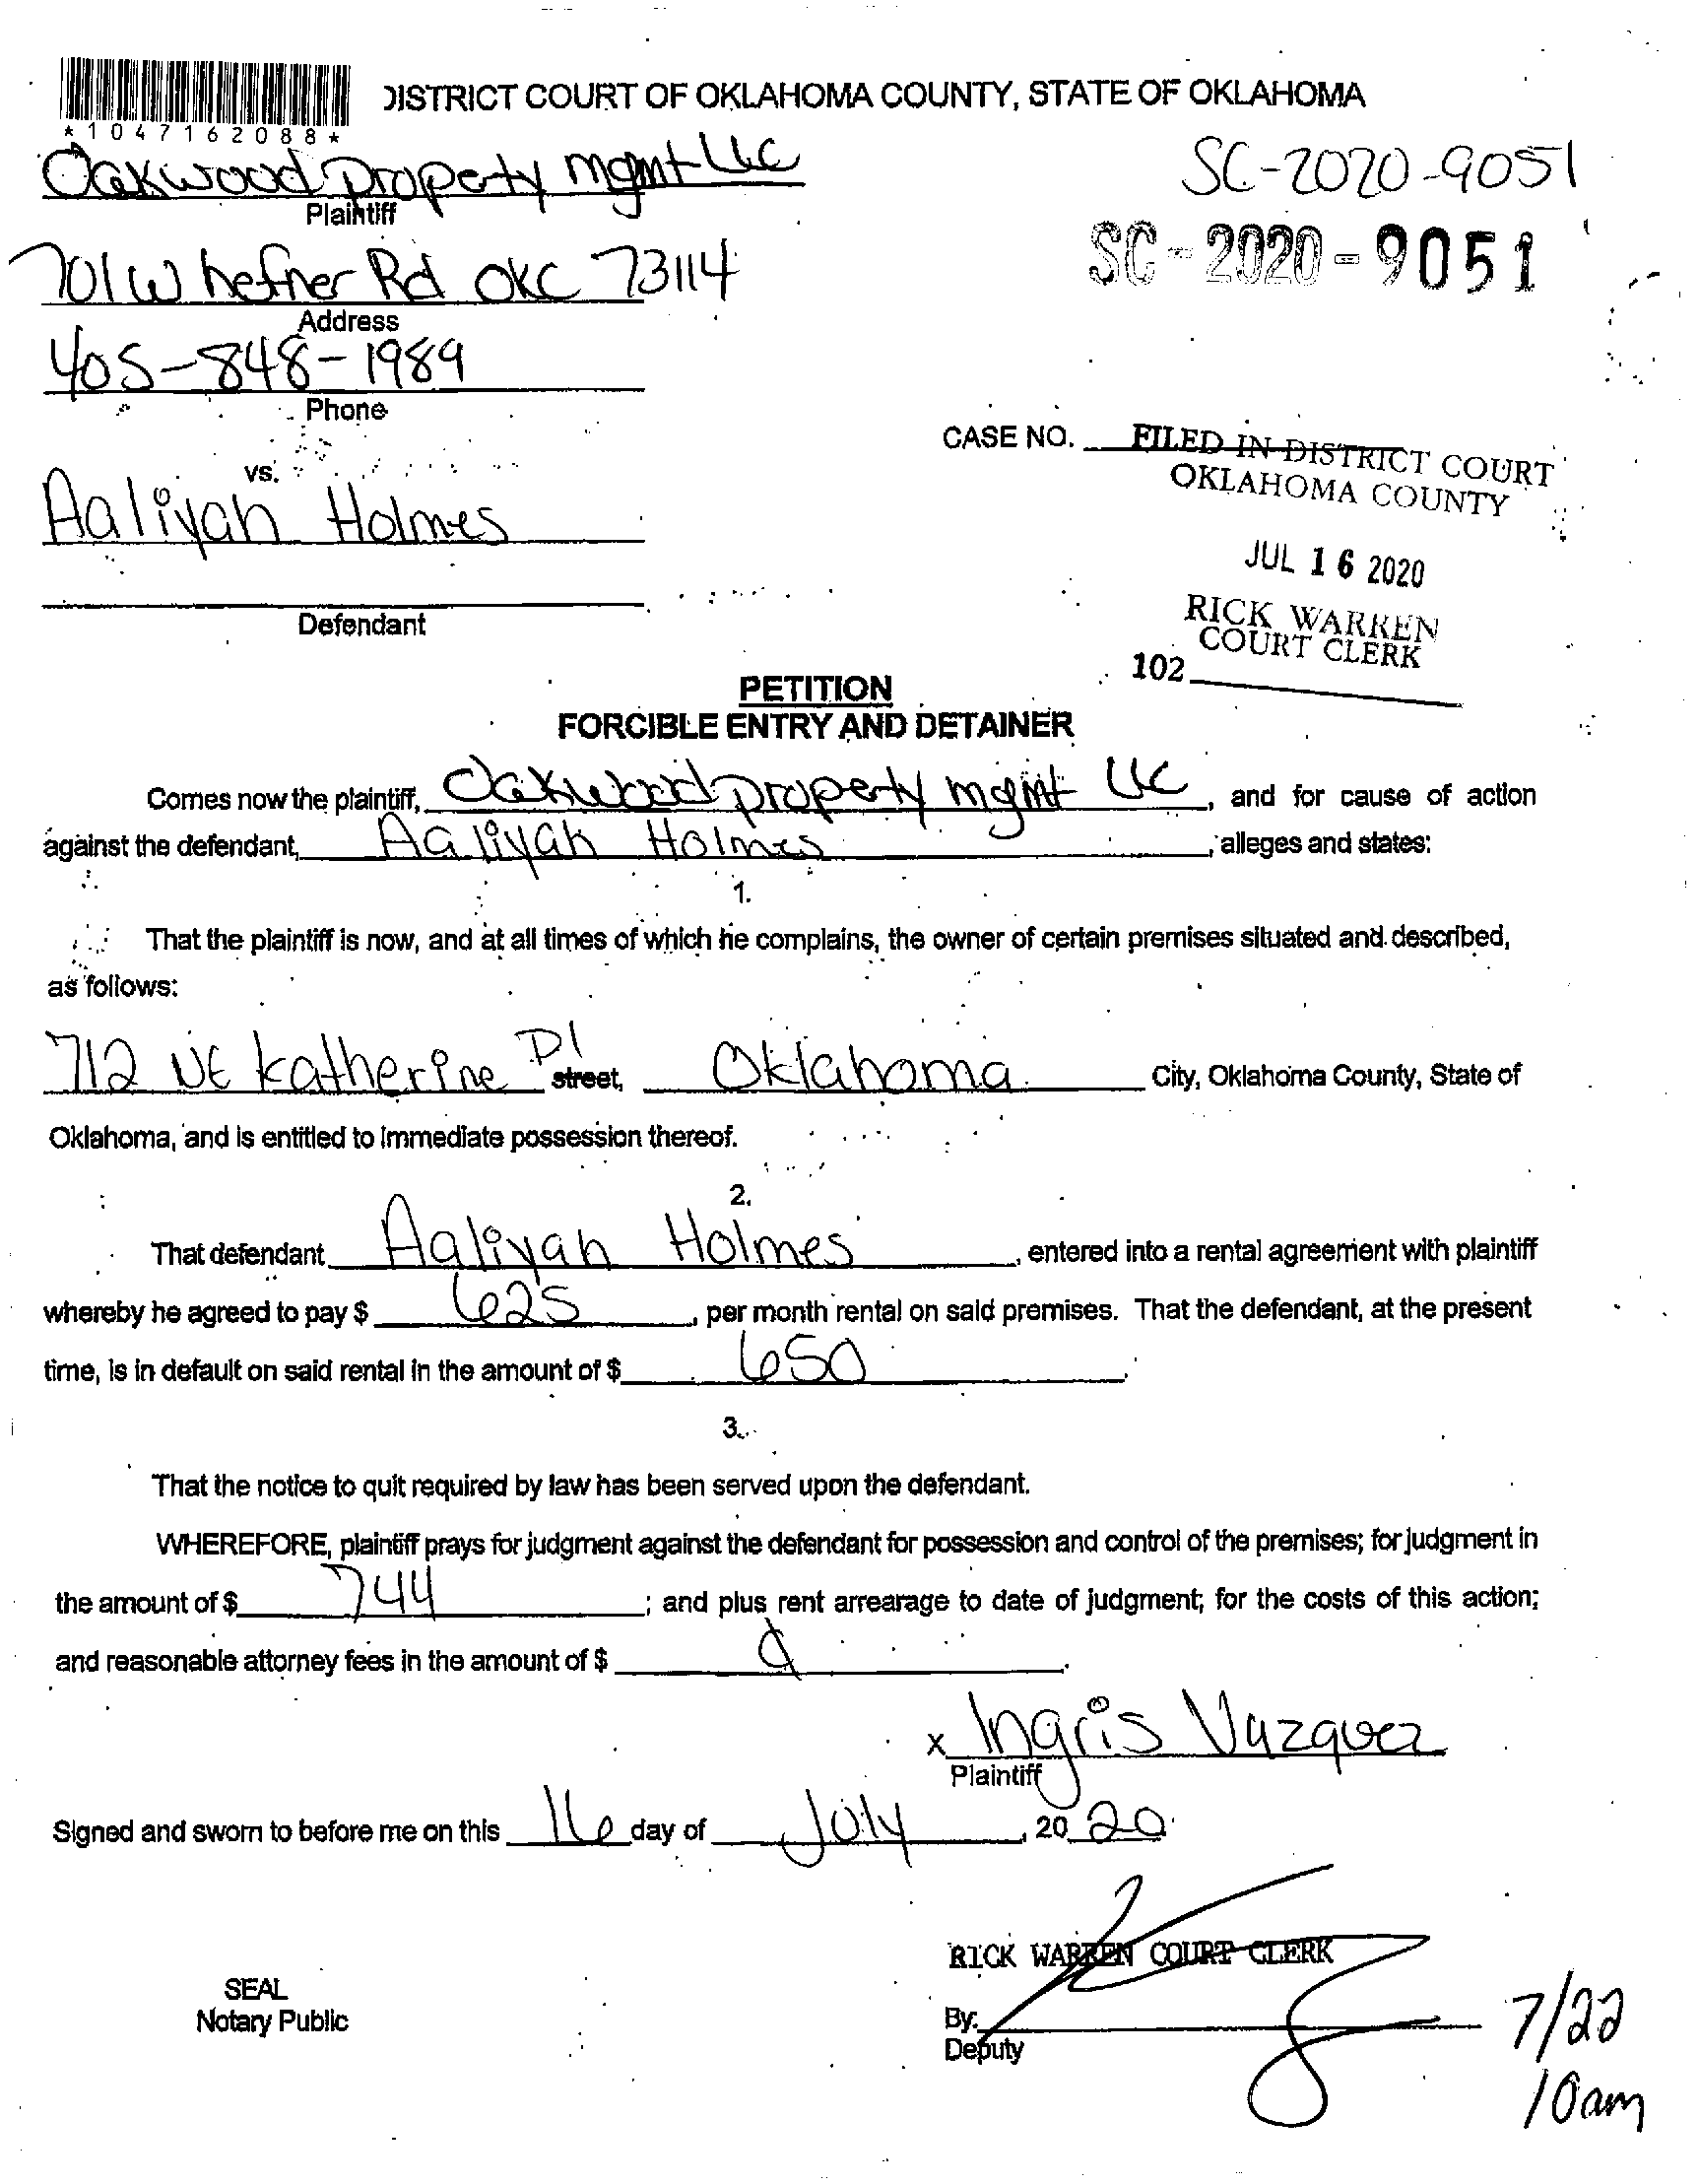 DISTRICT COURT OF OKLAHOMA COUNTY, STATE OF OKLAHOMA
*1047162088*
Oakwood Property mgmt LLC
Plaintiff
SC-2020-9051
701 W hefner Rd OKC 73114
SC-2020-9051
Address
405-848-1989
Phone
CASE NO.
FILED IN DISTRICT COURT
OKLAHOMA COUNTY
vs.
Aaliyah Holmes
JUL 16 2020
Defendant
RICK WARREN
COURT CLERK
102
PETITION
FORCIBLE ENTRY AND DETAINER
Comes now the plaintiff, Oakwood property mgmt LLC, and for cause of action
against the defendant, Aaliyah Holmes, alleges and states:
1.
That the plaintiff is now, and at all times of which he complains, the owner of certain premises situated and described,
as follows:
712 NE Katherine Pl street, Oklahoma City, Oklahoma County, State of
Oklahoma, and is entitled to immediate possession thereof.
2.
That defendant Aaliyah Holmes, entered into a rental agreement with plaintiff
whereby he agreed to pay $ 625, per month rental on said premises. That the defendant, at the present
time, is in default on said rental in the amount of $ 650.
3.
That the notice to quit required by law has been served upon the defendant.
WHEREFORE, plaintiff prays for judgment against the defendant for possession and control of the premises; for judgment in
the amount of $ 744; and plus rent arrearage to date of judgment; for the costs of this action;
and reasonable attorney fees in the amount of $
x Ingris Vazquez
Plaintiff
Signed and sworn to before me on this 16 day of July, 20 20
RICK WARREN COURT CLERK
SEAL
Notary Public
By:
Deputy
7/22
10am